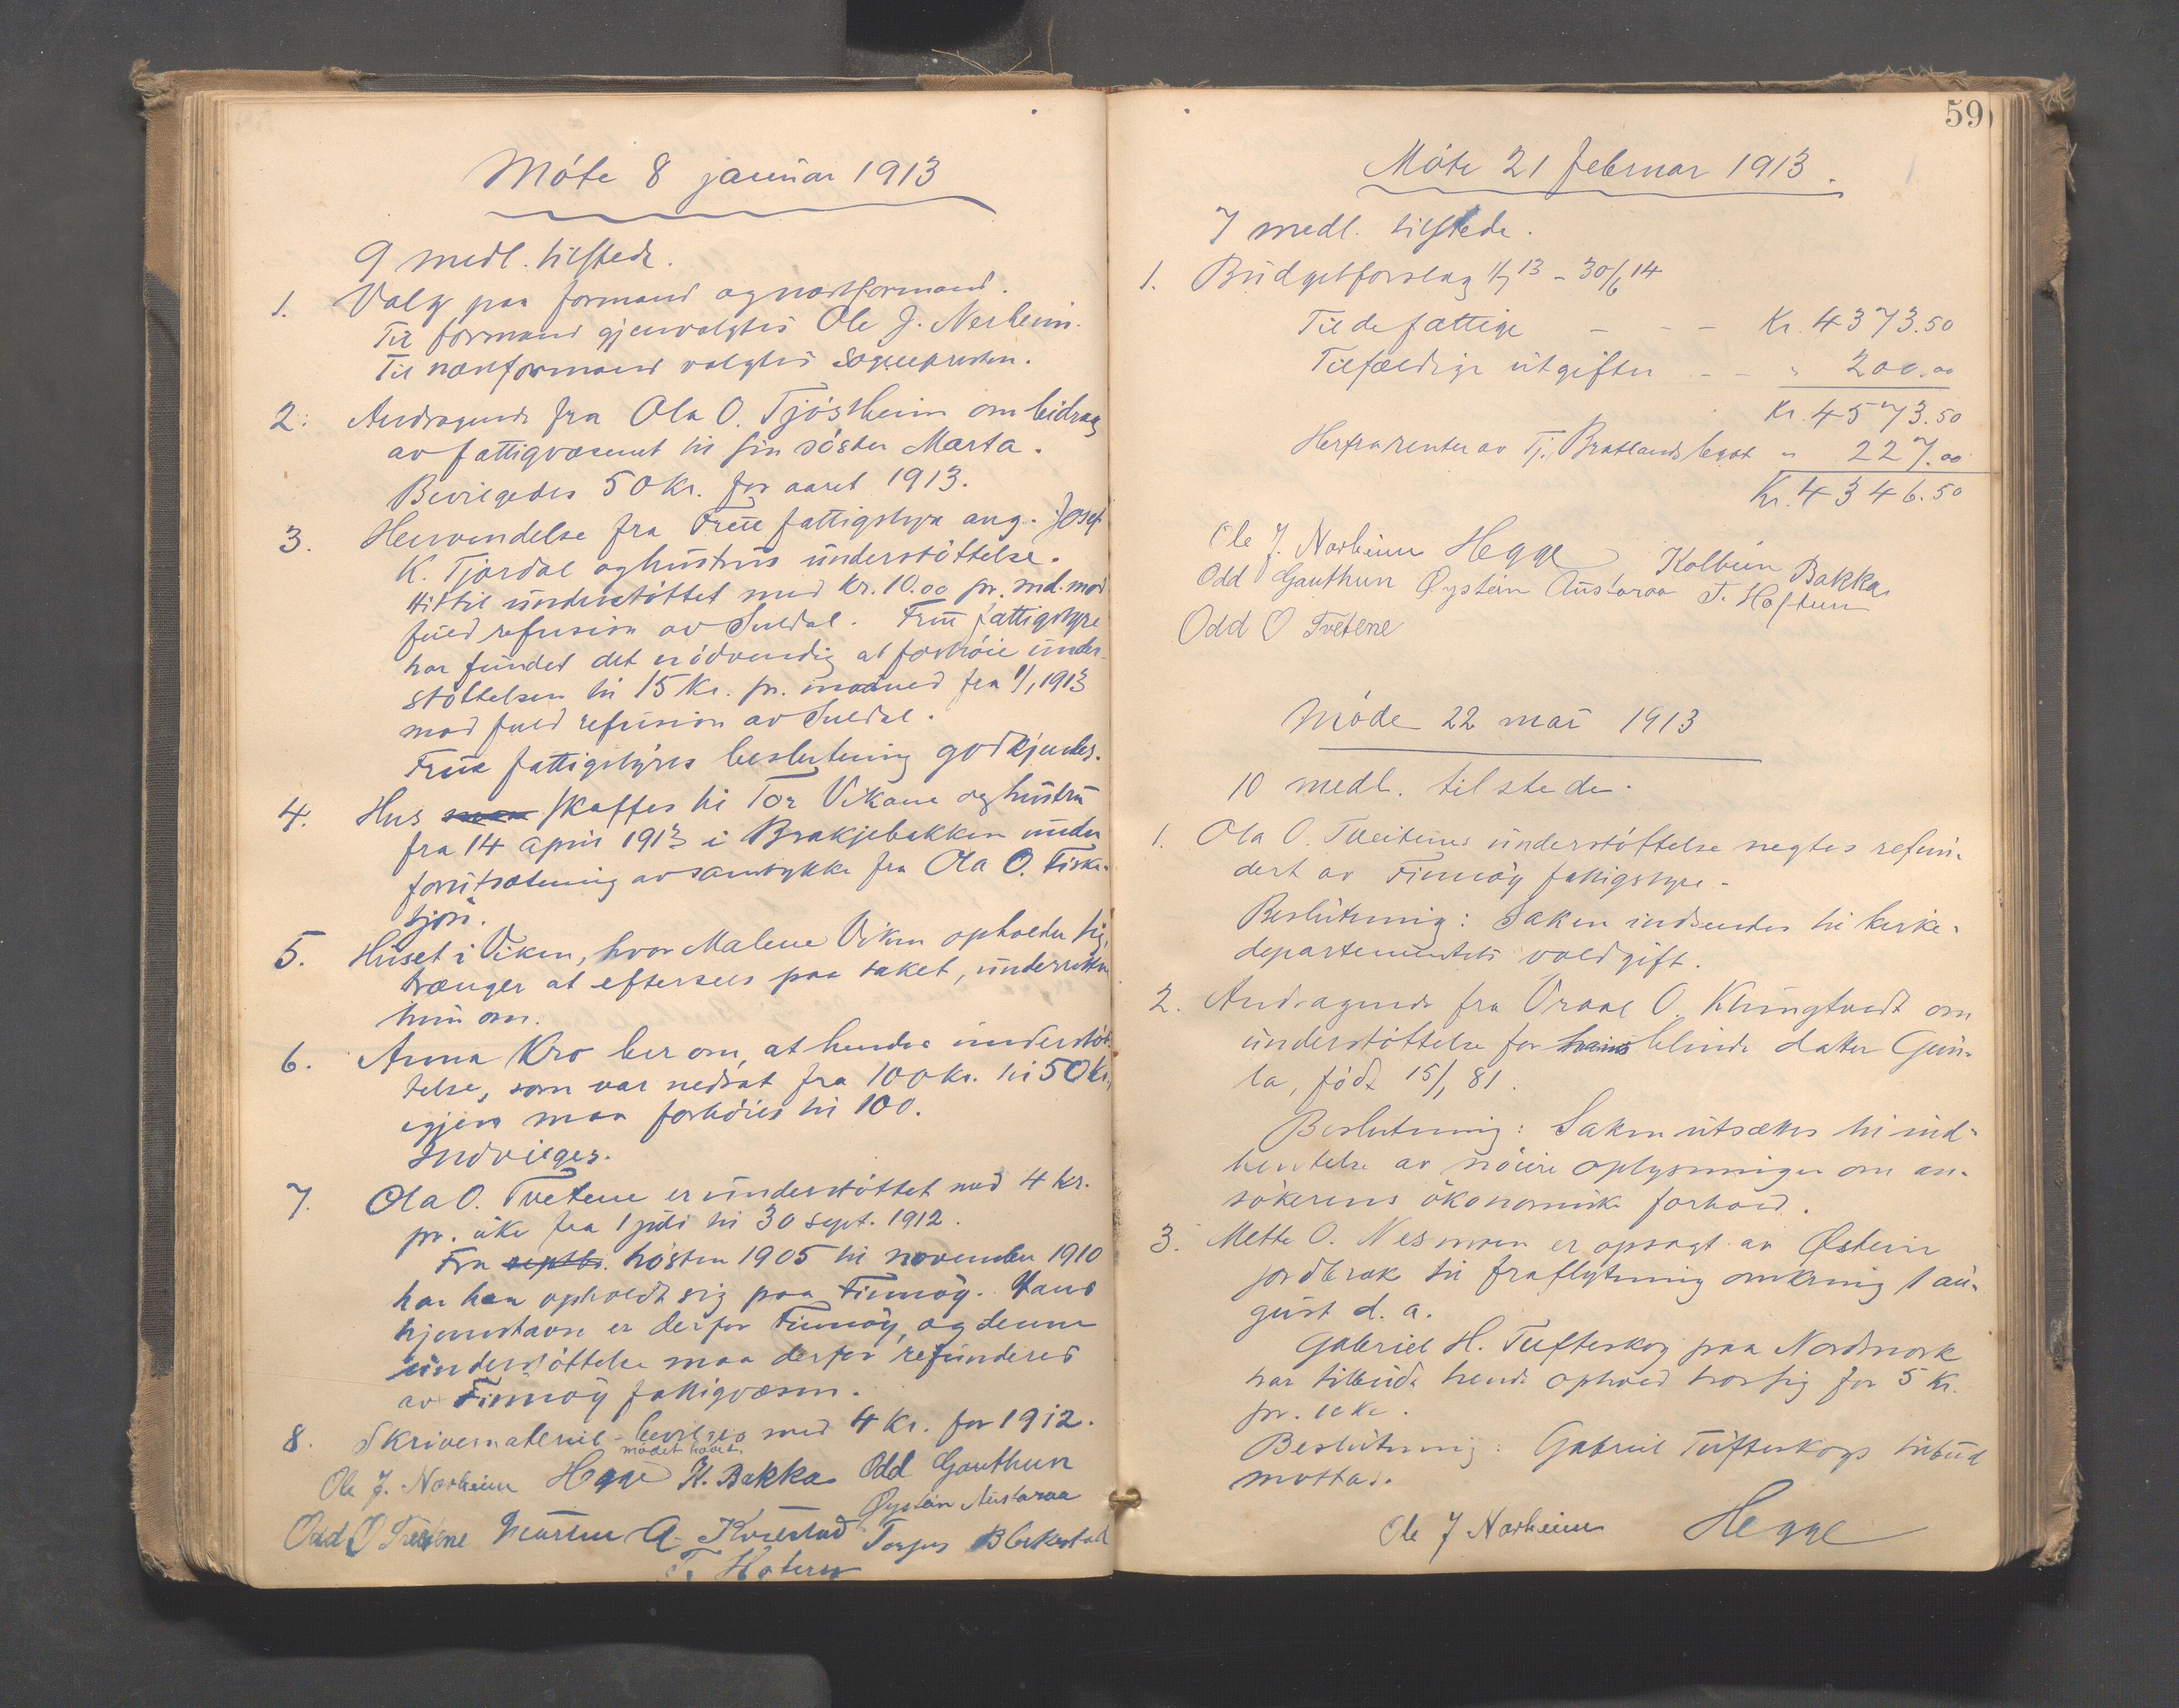 Móte 8 januar 1913
9 medl. tilstede.
1. Valg paa formand og næstformand.
Til formand gjenvalgtes Ole J. Nerheim.
Til næstformand valgtes sognepresten.
2. Andragende fra Ola O. Tjóstheim om bidrag
av fattigvæsenet til sin sóster Marta.
Bevilgedes 50 kr. for aaret 1913.
3. Henvendelse fra Frue fattigstyre ang. Josef
K. Tjordal og hustrus understóttelse.
Hittil understóttet med kr. 10.00 pr. md. mod
fuld refusion av Suldal. Frue fattigstyre
har fundet det nódvendig at forhóie under-
stóttelsen til 15 kr. pr. maaned fra 1/1 1913
mod fuld refusion av Suldal.
Frue fattigstyres beslutning godkjendes.
4. Hus skaffes til Tor Vikane og hustru
fra 14 april 1913 i Brakjebakken under
forutsætning av samtykke fra Ola O. Fiske-
tjón.
5. Huset i Viken, hvor Malene Viken opholder sig,
trænger at eftersees paa taket, underretter
hun om.
6. Anna Kro ber om, at hendes understót-
telse, som var nedsat fra 100 kr. til 50 kr.,
igjen maa forhóies til 100.
Indvilges.
7. Ola O. Tvetene er understóttet med 4 kr.
pr. uke fra 1 juli til 30 sept. 1912.
Fra septbr. hósten 1905 til november 1910
har han opholdt sig paa Finnóy. Hans
hjemstavn er derfor Finnóy, og denne
understóttelse maa derfor refunderes
av Finnóy fattigvæsen.
8. Skrivemateriel bevilges med 4 kr. for 1912.
mødet hævet.
Ole J. Nærheim Hegge K. Bakka Odd Gauthun
Øystein Austaraa
Odd O Tvetene A. Kvilstad Torjus Blekestad
T. Hoftun
59
Móte 21 februar 1913.
7 medl. tilstede.
1. Budgetforslag 1/7 13 – 30/6 14
Til de fattige – – – Kr. 4373.50
Tilfældige utgifter – – " 200.00
Kr. 4573.50
Herfra renter av Tj. Bratlands legat " 227.00
Kr. 4346.50
Ole J. Nærheim Hegge Kolbein Bakka
Odd Gauthun Øystein Austaraa T. Hoftun
Odd O Tvetene
Móde 22 mai 1913
10 medl. tilstede.
1. Ola O. Tveitenes understóttelse negtes refun-
dert av Finnóy fattigstyre.
Beslutning: Saken indsendes til kirke-
departementets voldgift.
2. Andragende fra Vraal O. Klungtvedt om
understóttelse for hans blinde datter Gun-
la, fódt 15/1 81.
Beslutning: Saken utsættes til ind-
hentelse av nóiere oplysninger om an-
sókerens ókonomiske forhold.
3. Mette O. Nesmoen er opsagt av Østein
Jordbræk til fraflytning omkring 1 au-
gust d. a.
Gabriel H. Tufteskog paa Nordmork
har tilbudt hende ophold hos sig for 5 kr.
pr. uke.
Beslutning: Gabriel Tufteskogs tilbud
mottas.
Ole J Nærheim Hegge